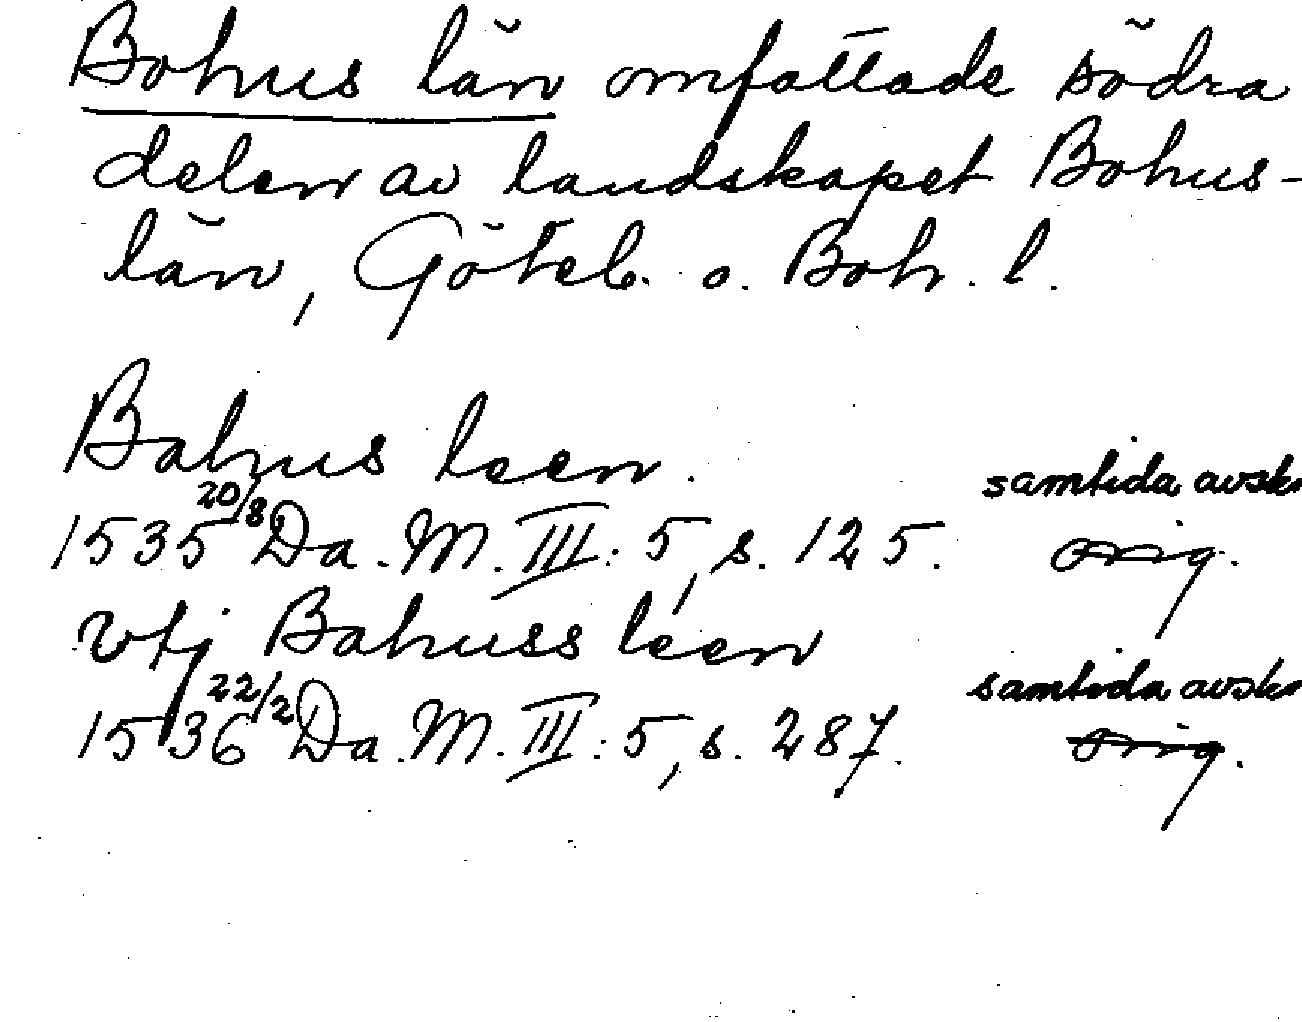 Bohus län omfattade södra
delen av landskapet Bohus-
län, Göteb. o. Boh. l.
Bahus leen.
samtida avskr
1535 20/8 Da. M. III: 5, s. 125. orig.
vtj Bahuss leen
samtida avskr
1536 22/2 Da. M. III: 5, s. 287. orig.